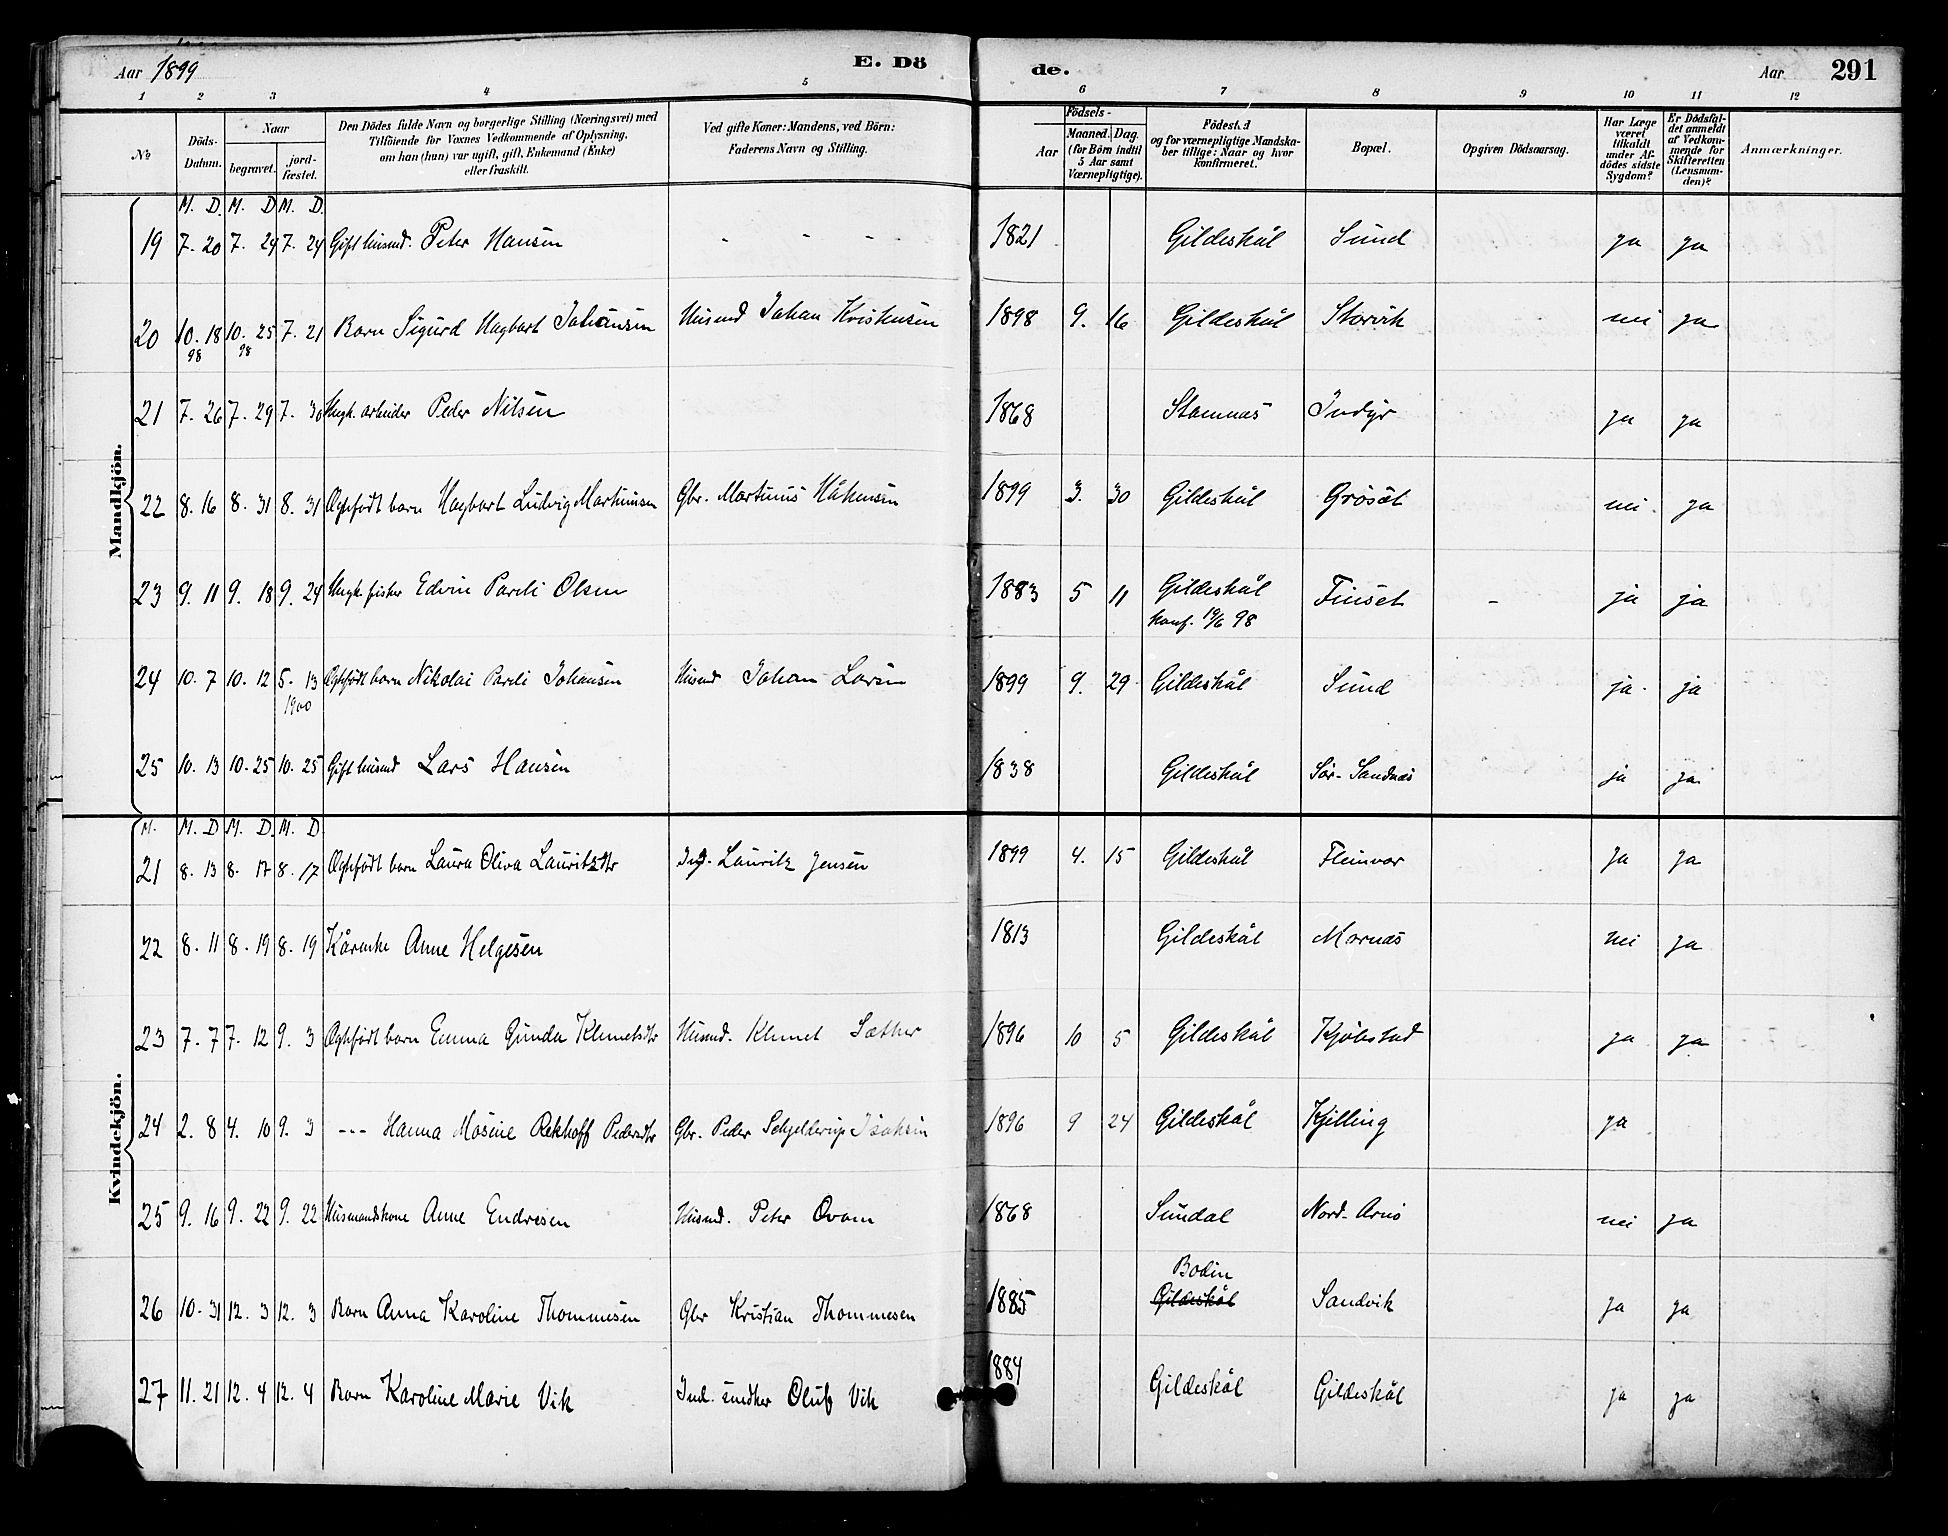 Aar 1899 E. Dö de. Aar 291
1 2 3 4 5 6 7 8 9 10 11 12
№ Döds-Datum. Naar begravet. jord-fæstet. Den Dödes fulde Navn og borgerlige Stilling (Næringsvei) med Tilföiende for Voxnes Vedkommende af Oplysning, om han (hun) var ugift, gift, Enkemand (Enke) eller fraskilt. Ved gifte Koner: Mandens, ved Börn: Faderens Navn og Stilling. Födsels- Aar Maaned. Dag. (for Börn indtil 5 Aar samt Værnepligtige). Födested og for værnepligtige Mandskaber tillige: Naar og hvor konfirmeret. Bopæl. Opgiven Dödsaarsag. Har Læge været tilkaldt under Afdödes sidste Sygdom? Er Dödsfaldet anmeldt af Vedkommende for Skifteretten (Lensmanden)? Anmærkninger.
Mandkjön.
M. D. M. D. M. D.
19 7. 20 7. 24 7. 24 Gift husmd. Peter Hansen - - - 1821 Gildeskål Sund ja ja
20 10. 18 98 10. 25 98 7. 21 Barn Sigurd Hagbart Johansen Husmd Johan Kristensen 1898 9. 16 Gildeskål Storvik nei ja
21 7. 26 7. 29 7. 30 Ungk. arbeider Peder Nilsen 1868 Stamnæs Indyr ja ja
22 8. 16 8. 31 8. 31 Ægtefødt barn Hagbart Ludvig Martinusen Gbr. Martinus Håkensen 1899 3. 30 Gildeskål Grøsåt nei ja
23 9. 11 9. 18 9. 24 Ungk. fisker Edvin Pareli Olsen 1883 5 11 Gildeskål konf. 19/6 98 Finset - ja ja
24 10. 7 10. 12 5. 13 1900 Ægtefødt barn Nikolai Pareli Johansen Husmd Johan Larsen 1899 9. 29 Gildeskål Sund ja ja
25 10. 13 10. 25 10. 25 Gift husmd Lars Hansen 1838 Gildeskål Sør-Sandnæs ja ja
Kvindekjön.
M. M. D M. D. M. D
21 8. 13 8. 17 8. 17 Ægtefødt barn Laura Oliva Lauritzdtr Lauritz Jensen 1899 4. 15 Gildeskål Fleinvær ja ja
22 8. 11 8. 19 8. 19 Kårenke Anne Helgesen 1813 Gildeskål Mårnæs nei ja
23 7. 7 7. 12 9. 3 Ægtefødt barn Emma Gunda Klemetsdtr Husmd. Klemet Sæther 1896 10 5 Gildeskål Kjølstad ja ja
24 2. 8 4. 10 9. 3 --- Hanna Mosine Rekhoff Pedersdtr Gbr. Peder Schjelderup Isaksen 1896 9 24 Gildeskål Kjelling ja
25 9. 16 9. 22 9. 22 Husmandskone Anne Endresen Husmd. Peter 1868 Sundal Nord-Arnø nei ja
26 10. 31 12. 3 12. 3 Barn Anna Karoline Thommesen Gbr Kristian Thommesen 1885 Bodin Gildeskål Sandvik ja ja
27 11. 21 12. 4 12. 4 Barn Karoline Marie Vik Ind. snedker Oluf Vik 1884 Gildeskål Gildeskål ja ja